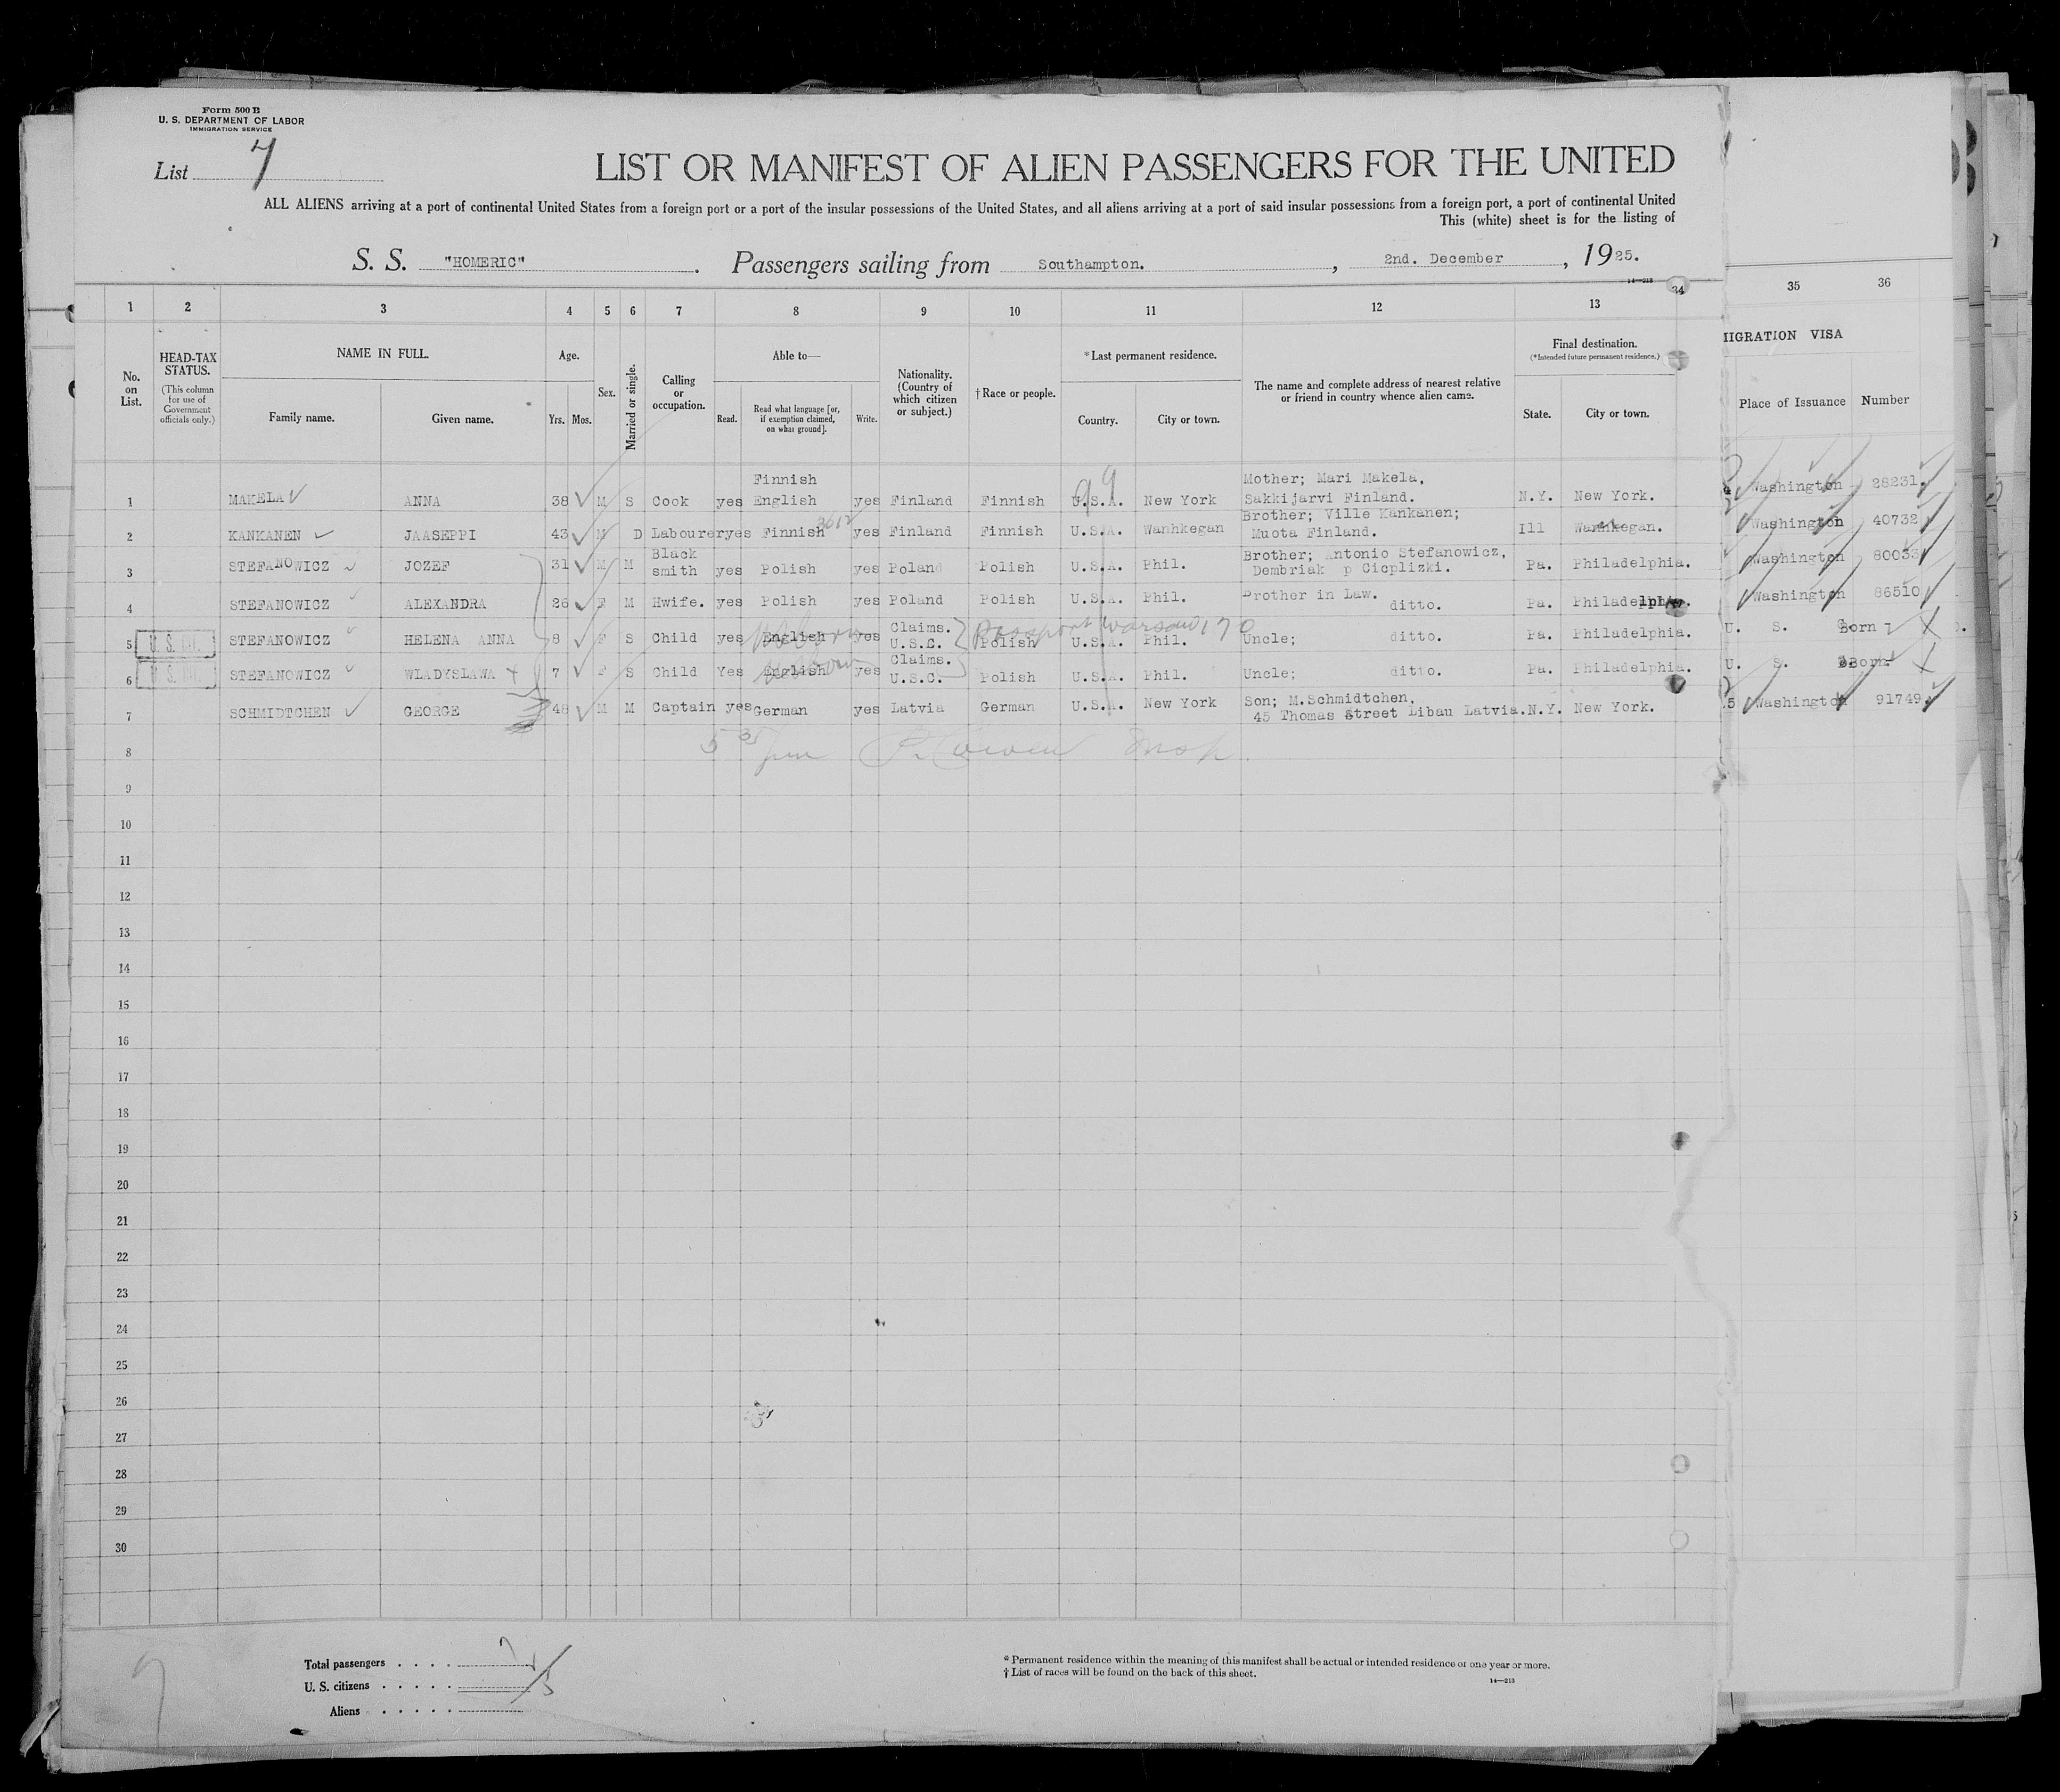 Form 500 B
U. S. DEPARTMENT OF LABOR
IMMIGRATION SERVICE
List 7
LIST OR MANIFEST OF ALIEN PASSENGERS FOR THE UNITED
ALL ALIENS arriving at a port of continental United States from a foreign port or a port of the insular possessions of the United States, and all aliens arriving at a port of said insular possessions from a foreign port, a port of continental United
This (white) sheet is for the listing of
S. S. "HOMERIC". Passengers sailing from Southampton., 2nd. December, 1925.
14—213
1 2 3 4 5 6 7 8 9 10 11 12 13 34 35 36
No. on List.
HEAD-TAX STATUS. (This column for use of Government officials only.)
NAME IN FULL.
Family name. Given name.
Age.
Yrs. Mos.
Sex.
Married or single.
Calling or occupation.
Able to—
Read. Read what language [or, if exemption claimed, on what ground]. Write.
Nationality. (Country of which citizen or subject.)
† Race or people.
* Last permanent residence.
Country. City or town.
The name and complete address of nearest relative or friend in country whence alien came.
Final destination.
(* Intended future permanent residence.)
State. City or town.
MIGRATION VISA
Place of Issuance Number
Finnish Mother; Mari Makela,
1 MAKELA ANNA 38 M S Cook yes English yes Finland Finnish U.S.A. New York Sakkijarvi Finland. N.Y. New York. Washington 28231
Brother; Ville Kankanen;
2 KANKANEN JAASEPPI 43 M D Labourer yes Finnish yes Finland Finnish U.S.A. Wanhkegan Muota Finland. Ill Wanhkegan. Washington 40732
Black Brother; Antonio Stefanowicz,
3 STEFANOWICZ JOZEF 31 M M smith yes Polish yes Poland Polish U.S.A. Phil. Dembriak p Cicplizki. Pa. Philadelphia. Washington 80033
Brother in Law.
4 STEFANOWICZ ALEXANDRA 26 F M Hwife. yes Polish yes Poland Polish U.S.A. Phil. ditto. Pa. Philadelphia. Washington 86510
Claims. Passport Warsaw 170
5 U. S. STEFANOWICZ HELENA ANNA 8 F S Child yes English yes U.S.C. Polish U.S.A. Phil. Uncle; ditto. Pa. Philadelphia. U. S. Born
Claims.
6 U. S. STEFANOWICZ WLADYSLAWA 7 F S Child Yes English yes U.S.C. Polish U.S.A. Phil. Uncle; ditto. Pa. Philadelphia. U. S. Born
Son; M.Schmidtchen,
7 SCHMIDTCHEN GEORGE 48 M M Captain yes German yes Latvia German U.S.A. New York 45 Thomas Street Libau Latvia. N.Y. New York. 5 Washington 91749
8
9
10
11
12
13
14
15
16
17
18
19
20
21
22
23
24
25
26
27
28
29
30
Total passengers . . . . 7
U. S. citizens . . . . .
Aliens . . . . .
* Permanent residence within the meaning of this manifest shall be actual or intended residence of one year or more.
† List of races will be found on the back of this sheet.
14—213